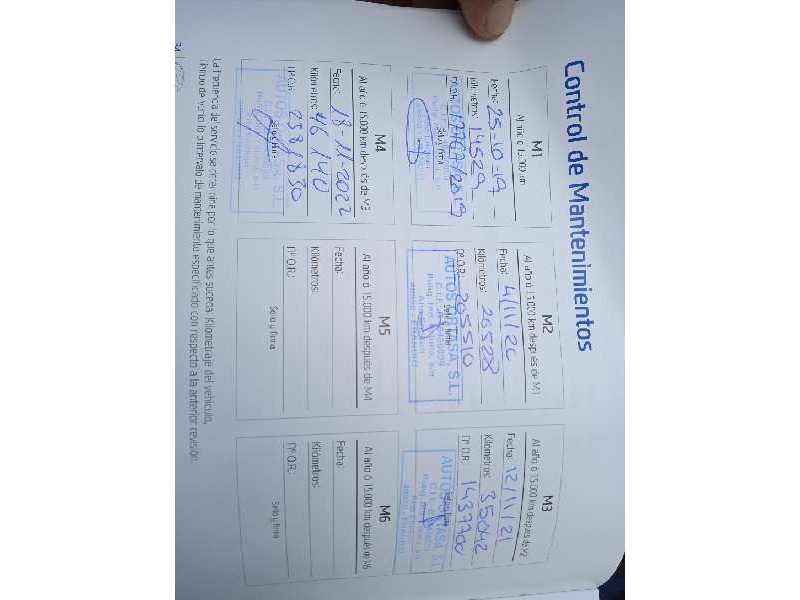 Control de Mantenimientos
M1
Al año ó 15.000 km
Fecha: 25-10-19
Kilómetros: 14529
Nº O.R.: 17767/2019
Sello y firma
M2
Al año ó 15.000 km después de M1
Fecha: 4/11/20
Kilómetros: 26528
Nº O.R.: 205510
AUTOS S.L.
M3
Al año ó 15.000 km después de M2
Fecha: 12/11/21
Kilómetros: 35042
Nº O.R.: 1437700
AUTOS S.L.
M4
Al año ó 15.000 km después de M3
Fecha: 18-11-2022
Kilómetros: 46140
Nº O.R.: 2581830
Sello y firma
AUTOS S.L.
M5
Al año ó 15.000 km después de M4
Fecha:
Kilómetros:
Nº O.R.:
Sello y firma
M6
Al año ó 15.000 km después de M5
Fecha:
Kilómetros:
Nº O.R.:
Sello y firma
La frecuencia del servicio se determina por lo que antes suceda: Kilometraje del vehículo,
tiempo de vehículo o intervalo de mantenimiento especificado con respecto a la anterior revisión.